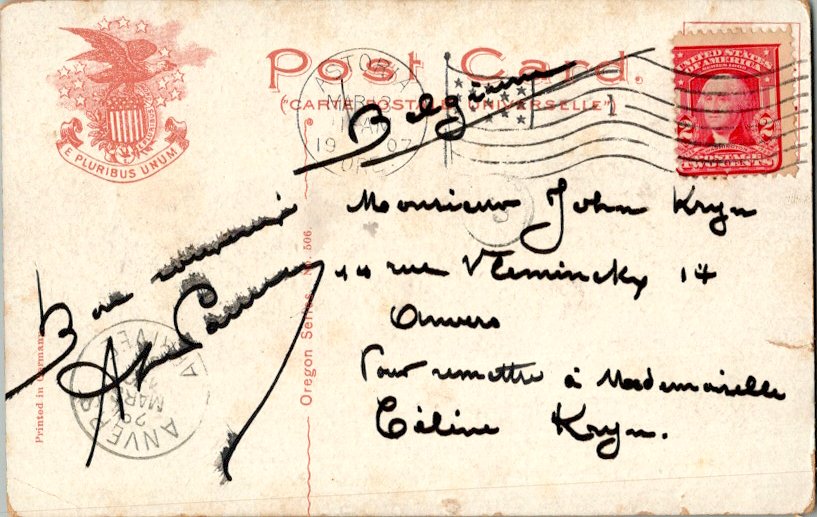 Post Card.
("CARTE POSTALE UNIVERSELLE")
E PLURIBUS UNUM
ASTORIA
MAR 13
AM
1907
OREG.
UNITED STATES
OF AMERICA
2 2
TWO CENTS
Belgium
Monsieur John Kryn
14 rue Vleminckx 14
Anvers
Pour remettre à Mademoiselle
Céline Kryn.
Bon
Oregon Series. No. 506.
Printed in Germany
ANVERS
ARRIVÉE
MARS